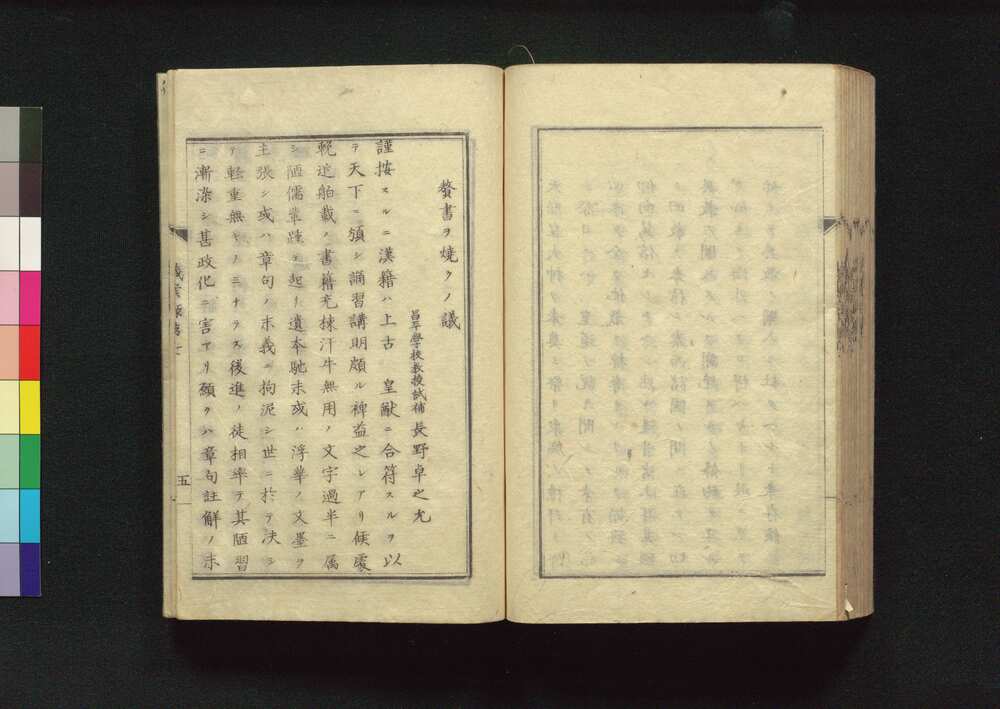 贅書ヲ燒クノ議
昌平學校教授試補 長野卓之允
謹按スルニ漢籍ハ上古 皇猷ニ合符スルヲ以
テ天下ニ頒シ誦習講明頗ル裨益之レアリ候處
輓近舶載ノ書籍充棟汗牛無用ノ文字過半ニ属
シ陋儒輩踵テ起リ遺本馳末或ハ浮華ノ文墨ヲ
主張シ或ハ章句ノ末義ニ拘泥シ世ニ於テ決シ
テ軽重無キノミナラス後進ノ徒相率テ其陋習
ニ漸染シ甚政化ニ害アリ顧クハ章句註解ノ末
五